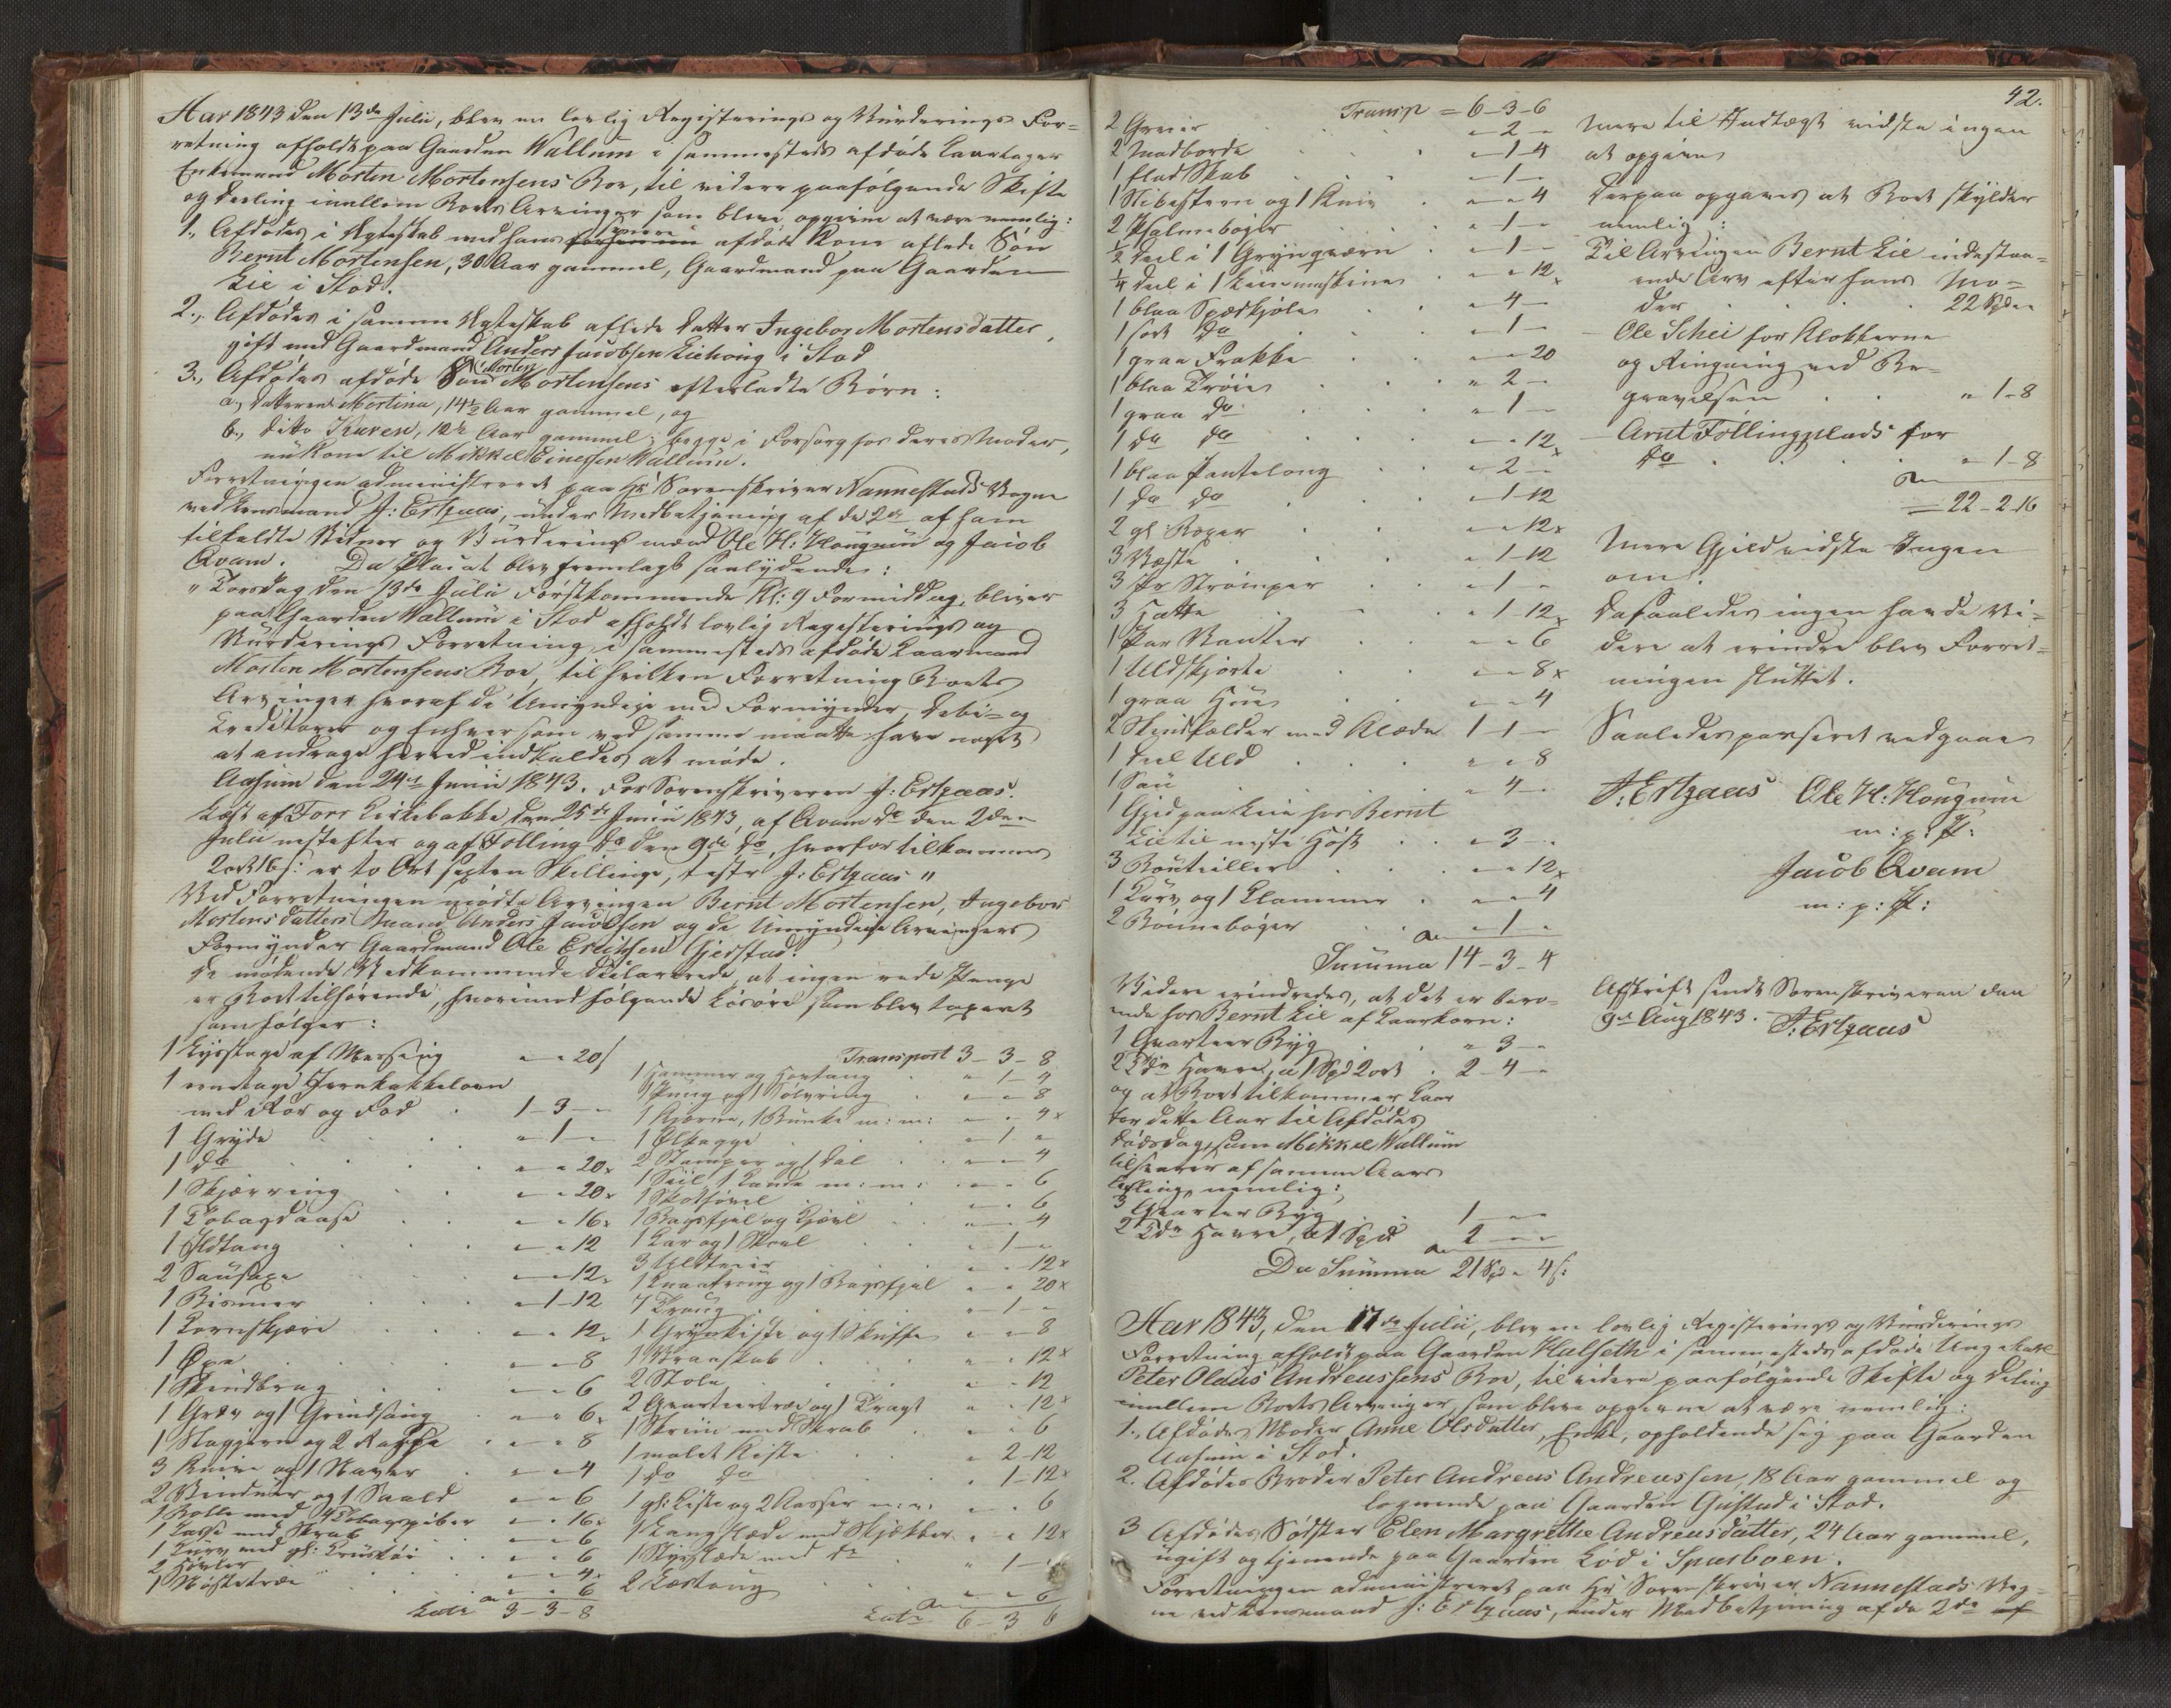 Aar 1843 den 13de Julii, blev en lovlig Registerings og Vurderings For=
retning afholdt paa Gaarden Wallum i sammesteds afdøde Kaartager
Enkemand Morten Mortensens Boe, til videre paafølgende Skifte
og Deeling imellem Boets Arvinger som bleve opgivne at være nemlig:
1., Afdødes i Ægteskab med hans afdøde Kone aflede Søn
Bernt Mortensen, 30 Aar gammel, Gaardmand paa Gaarden
Lie i Stod.
2., Afdødes i samme Ægteskab aflede Datter Ingebor Mortensdatter,
gift med Gaardmand Anders Jacobsen Liehoug i Stod
3., Afdødes afdøde Søn Morten Mortensens efterladte Børn:
a, Datteren Mortina, 14½ Aar gammel, og
b., ditto Karen, 12½ Aar gammel; begge i Forsorg hos deres Moder,
nu Kone til Mikkel Einersen Wallum.
Forretningen administreret paa Hr Sorenskriver Nannestads Vegne
ved Lensmand J: Ertzaas, under Medbetjening af de 2de af ham
tilkaldte Vitner og Vurderings mænd Ole H: Hougum og Jacob
Qvam. Da Placat blev fremlagt saalydende:
"Torsdag den 13de Julii førstkommende Kl: 9 Formiddag, bliver
paa Gaarden Wallum i Stod afholdt lovlig Registerings og
Vurderings Forretning i sammesteds afdøde Kaarmand
Morten Mortensens Boe, til hvilken Forretning Boets
Arvinger hvoraf de Umyndige med Formynder, Debi= og
Creditorer og Enhver som ved samme maatte have noget
at andrage herved indkaldes at møde.
Aasum den 24de Junii 1843. For Sorenskriveren J: Ertzaas.
Læst af For Kirkebakke den 25de Junii 1843, af Qvam do den 2den
Julii nestefter og af Følling do den 9de do, hvorfor tilkommer
2ort 16s: er to Ort sexten Skillinge, testr J: Ertzaas"
Ved Forretningen mødte Arvingen Bernt Mortensen, Ingebor
Mortensdatters Mand Anders Jacobsen og de Umyndige Arvingers
Formynder Gaardmand Ole Erichsen Gjerstad.
De mødende Vedkommende declarerede, at ingen rede Penge
er Boet tilhørende, hvorimod følgende Løsøre som blev taxeret
som følger:
1 Lysestage af Messing " " 20s
1 eenetage Jernkakkelovn
med Rør og Fod 1-3-"
1 Gryde " 1 "
1 do " " 20x
1 Skjærring " " 20x
1 Tobagsdaase " " 16x
1 Ildtang " " 12
2 Sausaxe " " 12x
1 Bismer " 1-12
1 Kornskjære " " 12x
1 Øxe " " 8
1 Skindbrag " " 6
1 Grev og 1 Grindsaug " " 6x
1 Slagjern og 2 Raspe " " 8
3 Knive og 1 Naver " " 4
2 Vinduer og 1 Saald " " 6
1 Bolle med 4 Tobagspiber " " 16x
1 Kasse med Skrab " " 6
1 Kurv med gl: Kruskar " " 6
2 Høvler " " 4x
1 Nøstetræe " " 6
Latr 3-3-8
Transport 3-3-8
1 Hammer og Hovtang " 1-4
1 Pung og 1 Sølvring " " 8
1 Kjerne, 1 Bunke m: m: " " 4x
1 Ølkagge " 1 "
2 Stamper og 1 Dal " " 4
1 Siil, 1 Kande m: m: " " 6
1 Skotshovel " " 6
1 Bagefjel og Kjævl " " 4
1 Kar og 1 Skaal " 1 "
3 Ildtener " " 12x
1 Knadtroug og 1 Bagefjel " " 20x
7 Troug " 1 "
1 Grynkiste og 1 Skuffe " " 8
1 Vraaskab " " 12x
2 Stole " " 12
2 Qvarteertræe og 1 Tragt " " 12x
1 Skriin med Skrab " " 6
1 malet Kiste " 2-12
1 do do " 1-12x
1 gl: Kiste og 2 Kasser m:m: " " 6
1 Langslæde med Skjækker " " 12x
1 Stysslæde med do " 1 "
2 Læstoug " " 6
Latr 6-3 6
42.
Transp = 6-3-6
2 Grever " 2 "
2 Madborde " 1-4
1 flad Skab " 1 "
1 Slibesteen og 1 Kniv " " 4
2 Psalmebøger " 1 "
½ Deel i 1 Grynqværn " 1 "
¼ Deel i 1 Rensemaskine " " 12x
1 blaa Spædkjole " 4 "
1 sort do " 1 "
1 graa Frakke " " 20
1 blaa Trøie " 2 "
1 graa do " 1 "
1 do do " " 12x
1 blaa Pantelong " 2 "
1 do do " 1-12
2 gl: Boxer " " 12x
3 Veste " 1-12
3 Pr Strømper " 1 "
3 Hatte " 1-12x
1 Par Vanter " " 6
1 Uldskjorte " " 8x
1 graa Hue " " 4
2 Skindfælder med Klæde 1-1-"
1 Deel Uld " " 8
1 Sau " 4 "
1 Gjed paa Leie hos Bernt
Lie til neste Høst " 3 "
3 Bouteiller " " 12x
1 Kurv og 1 Klammer " " 4
2 Bønnebøger " 1 "
Summa 14-3-4
Videre erindredes, at det er bero=
ende hos Bernt Lie af Kaarkorn:
1 Qvarteer Byg " 3 "
2 Tdr Havre, a 1 Spd 2ort 2-4-"
og at Boet tilkommer Kaar
for dette Aar til Afdødes
Dødsdag, som Mikkel Wallum
tilsvarer af samme Aars
Avling, nemlig:
3 Qvarter Byg 1 " "
2 Tdr Havre, a 1 Spd 2 " "
Da Summa 21 Spd " 4s:
mere til Indtægt vidste ingen
at opgive
Derpaa opgaves at Boet skylder
nemlig:
Til Arvingen Bernt Lie indestaa=
ende Arv efter hans Mo=
der 22 Spd "
Ole Schei for Klokkerne
og Ringning ved Be=
gravelsen " 1-8
Arnt Føllingplads for
do " 1-8
= 22-2-16
Mere Gjeld vidste Ingen
om.
Dasaaledes ingen havde Vi=
dere at erindre blev Forret=
ningen sluttet.
Saaledes passeret vedgaaes
J: Ertzaas Ole H: Hougum
m: p: P:
Jacob Qvam
m: p: P:
Afskrift sendt Sorenskriveren den
9de Aug 1843. J: Ertzaas
Aar 1843, den 17de Julii, blev en lovlig Registerings og Vurderings
Forretning afholdt paa Gaarden Halseth i sammesteds afdøde Ungekarl
Peter Olaus Andreassens Boe, til videre paafølgende Skifte og Deling
imellem Boets Arvinger, som bleve opgivne at være nemlig:
1., Afdødes Moder Anne Olsdatter, Enke, opholdende sig paa Gaarden
Aasum i Stod.
2. Afdødes Broder Peter Andreas Andreassen, 18 Aar gammel og
logerende paa Gaarden Gustad i Stod.
3 Afdødes Sødster Elen Margrethe Andreasdatter, 24 Aar gammel,
ugift og tjenende paa Gaarden Lød i Sparboen.
Forretningen administreret paa Hr Sorenskriver Nannestads Veg=
ne ved Lensmand J: Ertzaas, under Medbetjening af de 2de af